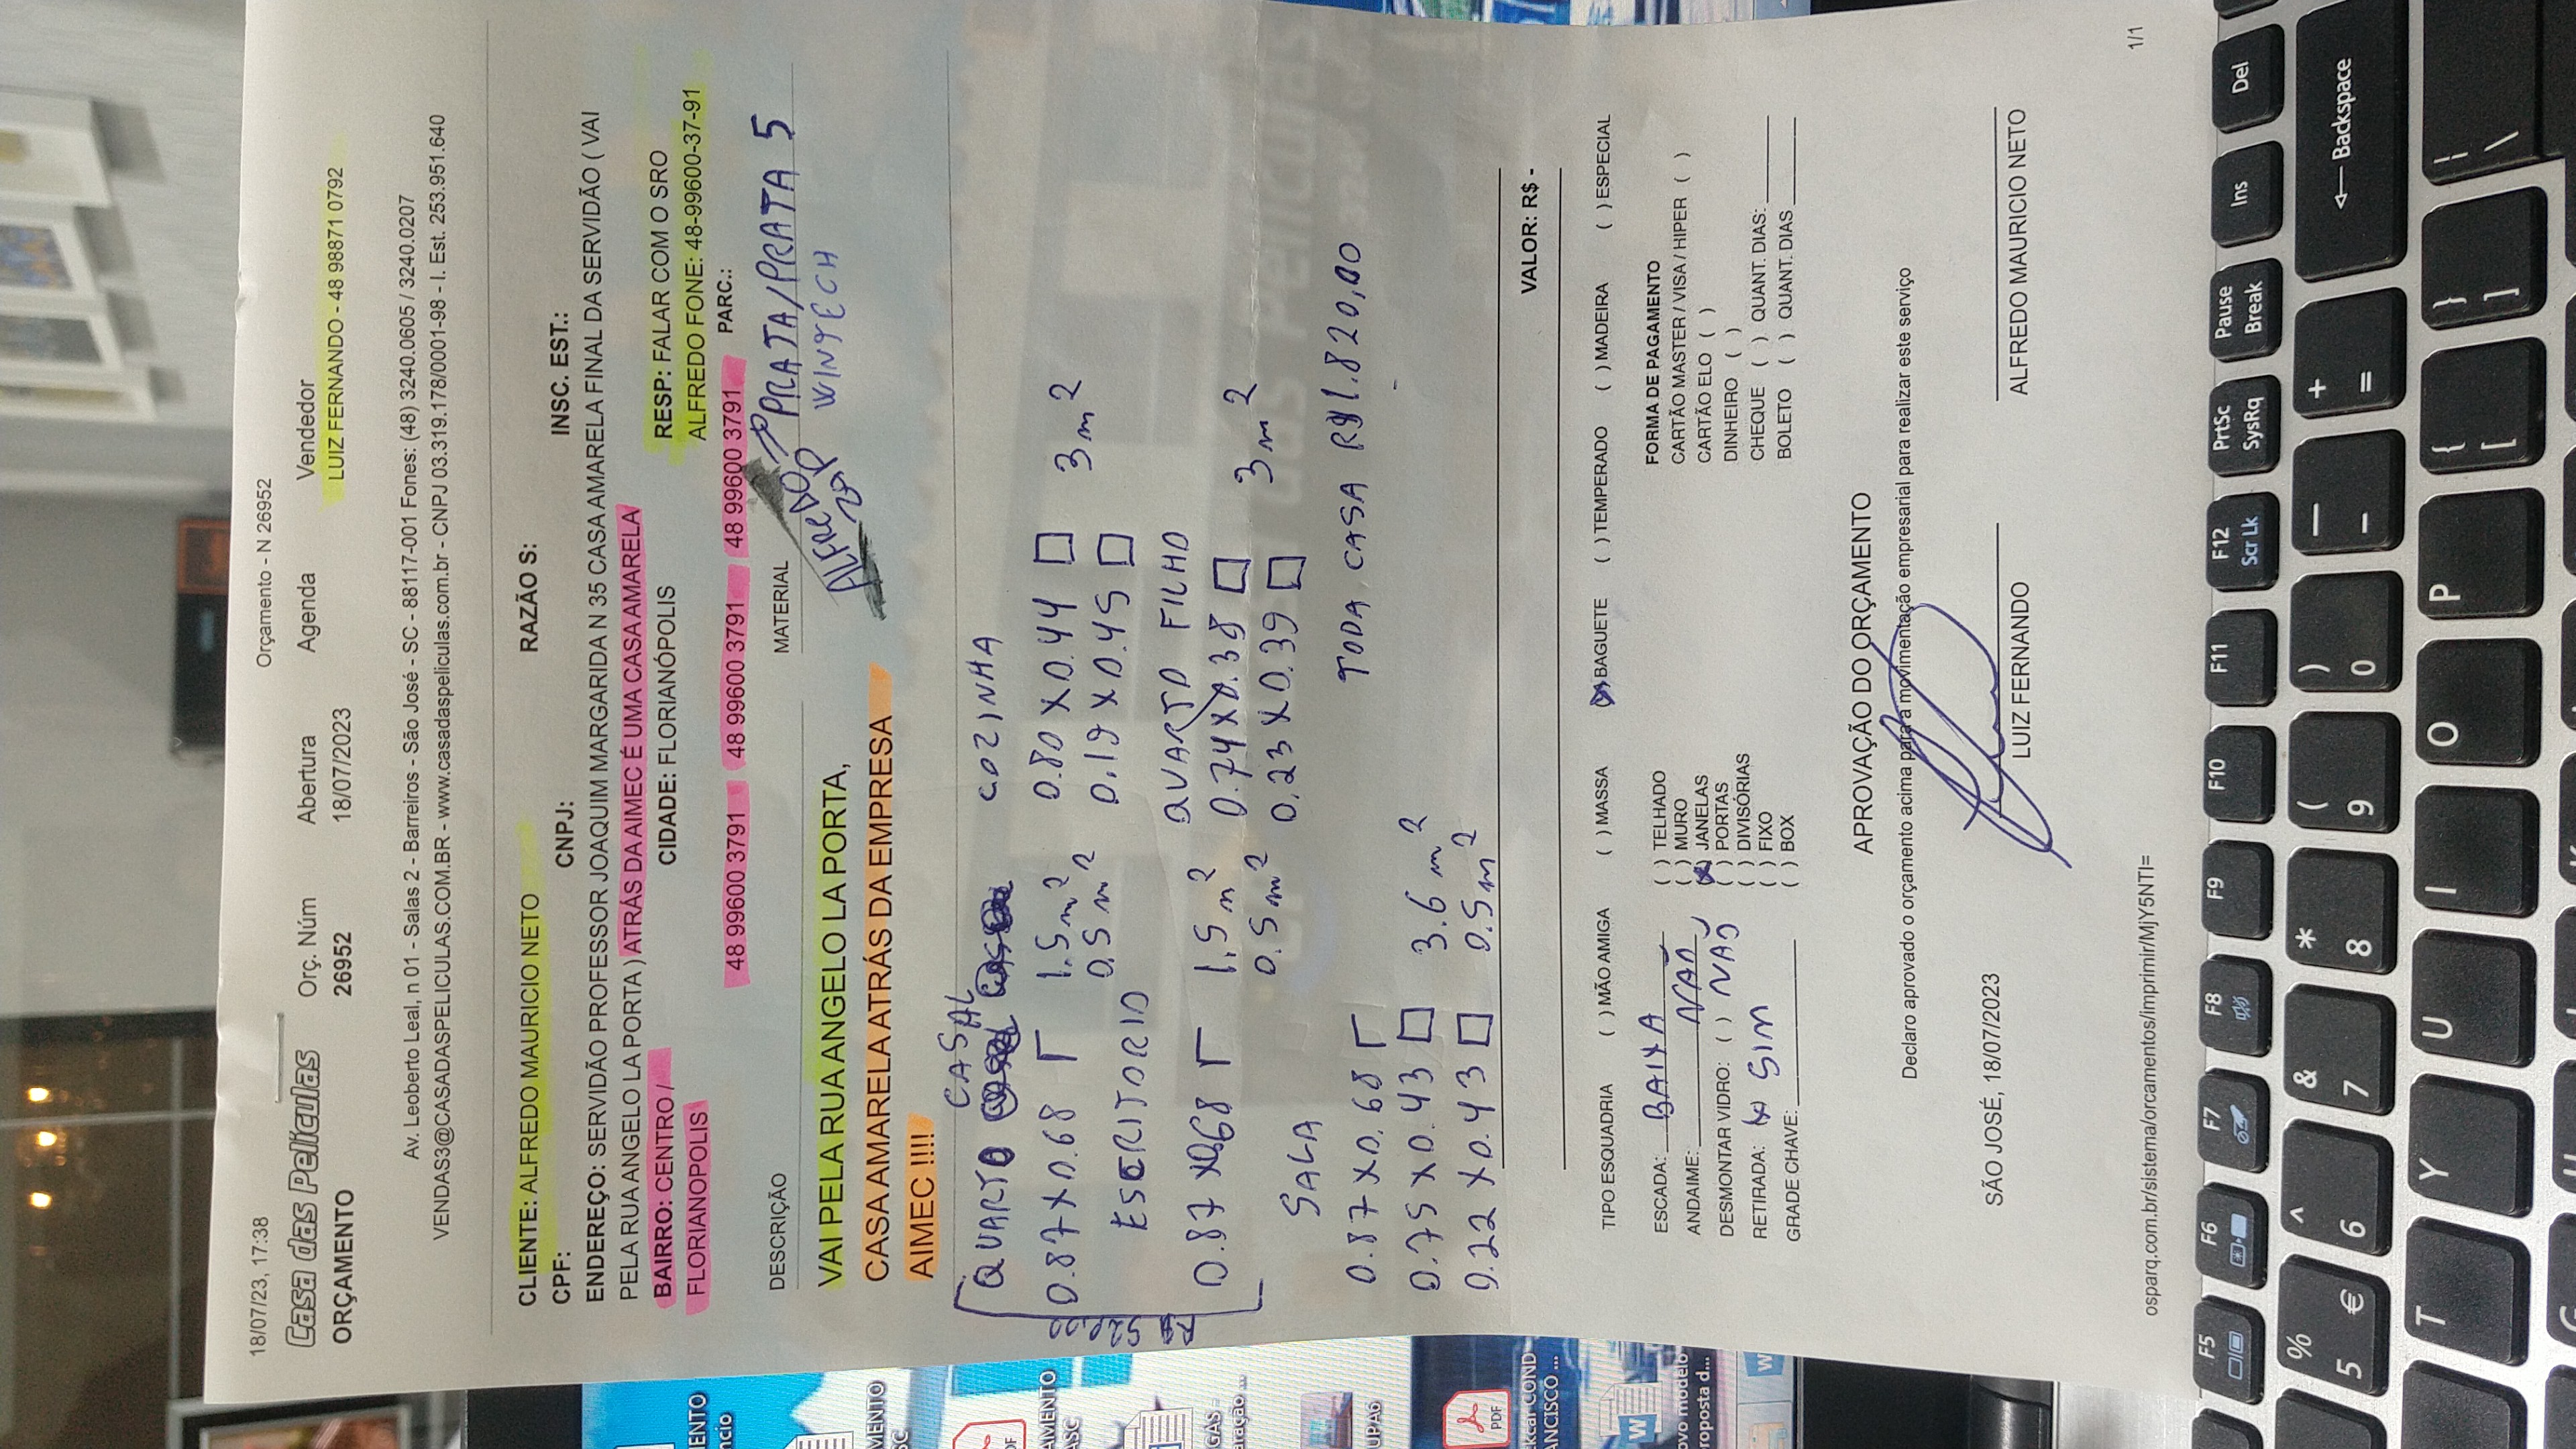 18/07/23, 17:38 Orçamento - N 26952
Casa das Películas
ORÇAMENTO
Orç. Núm Abertura Agenda Vendedor
26952 18/07/2023 LUIZ FERNANDO - 48 98871 0792
Av. Leoberto Leal, n 01 - Salas 2 - Barreiros - São José - SC - 88117-001 Fones: (48) 3240.0605 / 3240.0207
VENDAS3@CASADASPELICULAS.COM.BR - www.casadaspeliculas.com.br - CNPJ 03.319.178/0001-98 - I. Est. 253.951.640
CLIENTE: ALFREDO MAURICIO NETO RAZÃO S:
CPF: CNPJ: INSC. EST.:
ENDEREÇO: SERVIDÃO PROFESSOR JOAQUIM MARGARIDA N 35 CASA AMARELA FINAL DA SERVIDÃO ( VAI
PELA RUA ANGELO LA PORTA ) ATRÁS DA AIMEC É UMA CASA AMARELA
BAIRRO: CENTRO / CIDADE: FLORIANÓPOLIS RESP: FALAR COM O SRO
FLORIANOPOLIS ALFREDO FONE: 48-99600-37-91
48 99600 3791 48 99600 3791 48 99600 3791 48 99600 3791 PARC.:
DESCRIÇÃO MATERIAL
PRATA/PRATA 5
ALFREDO
WINTECH
VAI PELA RUA ANGELO LA PORTA,
CASA AMARELA ATRÁS DA EMPRESA
AIMEC !!!!
CASAL
QUARTO COZINHA
0.87 x 0.68 1.5 m2 0.80 x 0.44 3 m2
0.5 m2 0.19 x 0.45
ESCRITORIO QUARTO FILHO
0.87 x 068 1.5 m2 0.74 x 0.38 3 m2
0.5 m2 0.23 x 0.39
SALA
0.87 x 0.68 TODA CASA R$ 1.820,00
0.75 x 0.43 3.6 m2
0.22 x 0.43 0.5 m2
VALOR: R$ -
TIPO ESQUADRIA ( ) MÃO AMIGA ( ) MASSA (X) BAGUETE ( ) TEMPERADO ( ) MADEIRA ( ) ESPECIAL
ESCADA: BAIXA
ANDAIME: NÃO
DESMONTAR VIDRO: ( ) NÃO
RETIRADA: (x) SIM
GRADE CHAVE:
( ) TELHADO
( ) MURO
(X) JANELAS
( ) PORTAS
( ) DIVISÓRIAS
( ) FIXO
( ) BOX
FORMA DE PAGAMENTO
CARTÃO MASTER / VISA / HIPER ( )
CARTÃO ELO ( )
DINHEIRO ( )
CHEQUE ( ) QUANT. DIAS:
BOLETO ( ) QUANT. DIAS
APROVAÇÃO DO ORÇAMENTO
Declaro aprovado o orçamento acima para a movimentação empresarial para realizar este serviço
SÃO JOSÉ, 18/07/2023 LUIZ FERNANDO ALFREDO MAURICIO NETO
osparq.com.br/sistema/orcamentos/imprimir/MjY5NTI= 1/1
F5 F6 F7 F8 F9 F10 F11 F12 Scr Lk PrtSc SysRq Pause Break Ins Del
% 5 € ^ 6 & 7 * 8 ( 9 ) 0 — - + = Backspace
T Y U I O P { [ } ] | \
PDF
PDF
W